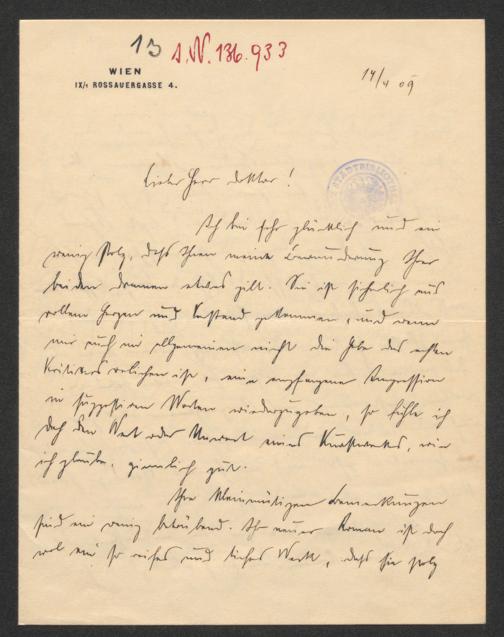 13 J.N. 136.933
WIEN
IX/1 ROSSAUERGASSE 4.
14/4 09
STÄDTBIBLIOTHEK
Lieber Herr Doktor!
Ich bin sehr glücklich und ein
wenig stolz, dass Ihnen meine Bewunderung Ihrer
beiden Dramen etwas gilt. Sie ist sicherlich aus
vollem Herzen und Verstand gekommen, und wenn
mir auch im allgemeinen nicht die Gabe des echten
Kritikers verliehen ist, eine empfangene Impression
in suggestiven Worten wiederzugeben, so fühle ich
doch den Wert oder Unwert eines Kunstwerks, wie
ich glaube, ziemlich gut.
Ihre kleinmütigen Bemerkungen
sind ein wenig betrübend. Ihr neuer Roman ist doch
wol ein so reifes und Werk, dass Sie stolz